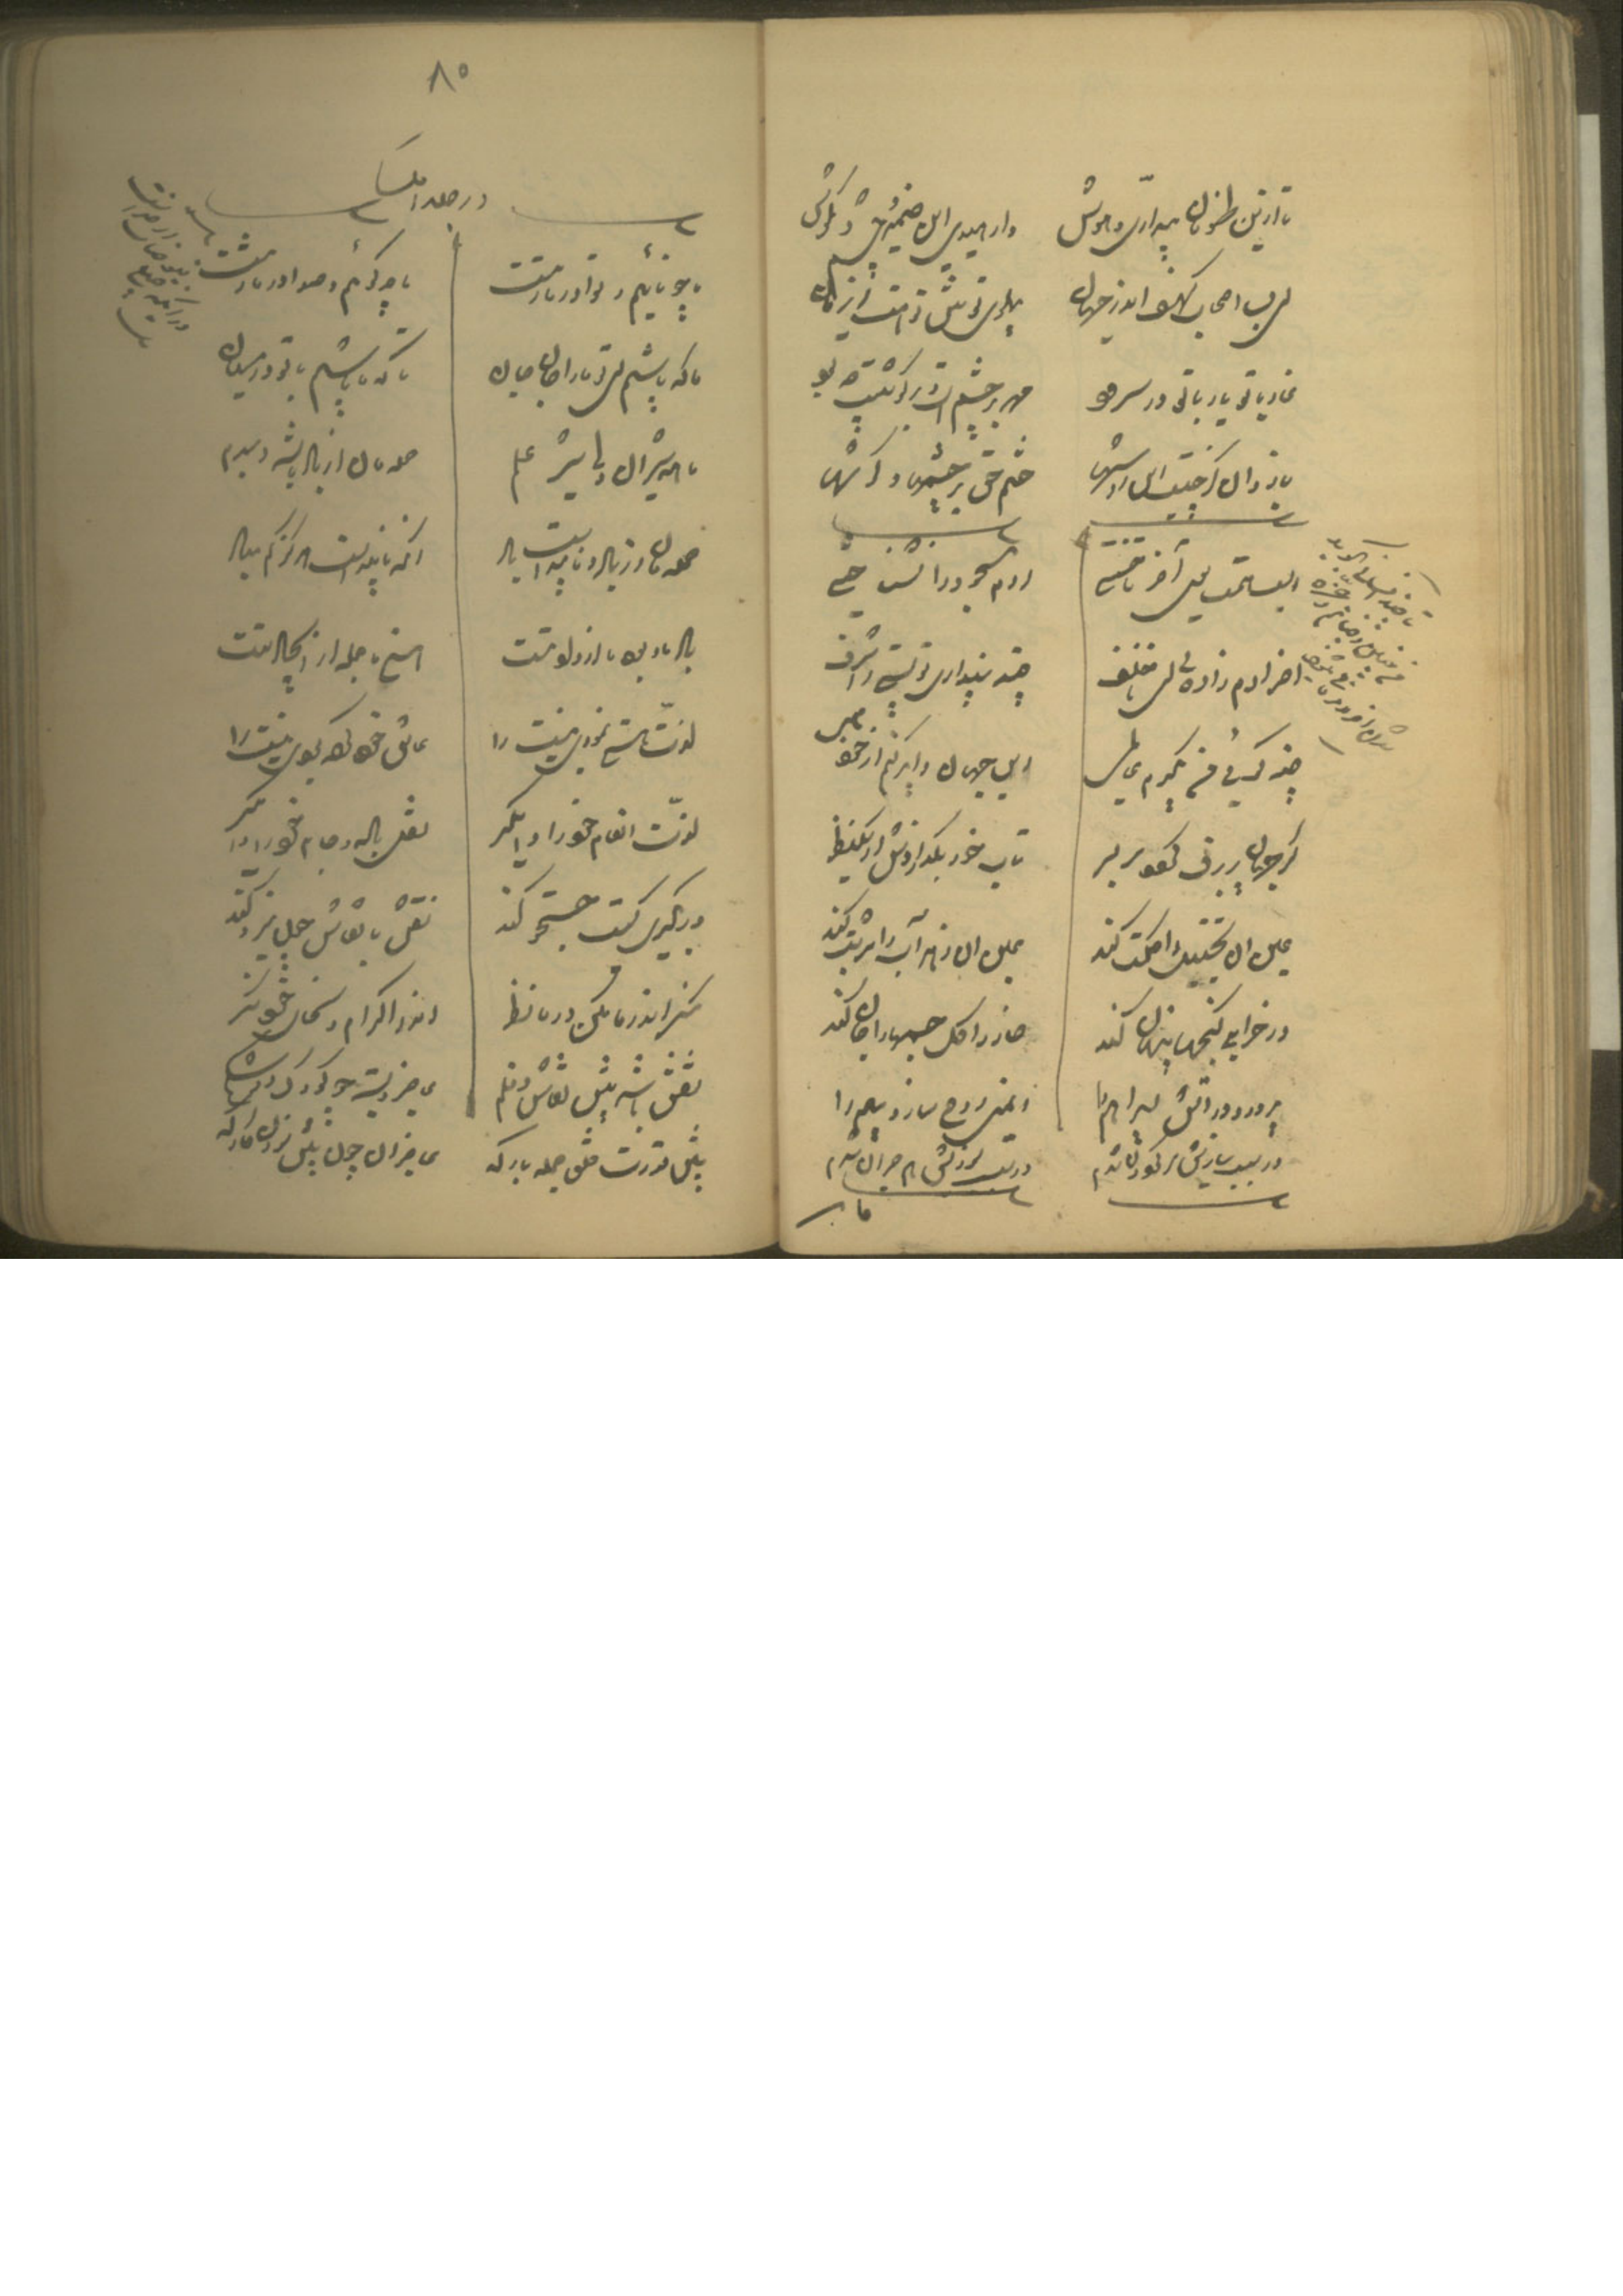 تا ازین طوفان بیداری و هوش وارهیدی این ضمیر و چشم و گوش
ای بسا اصحاب کهف اندر جهان پهلوی تو پیش تو هست این زمان
غار با تو یار با تو در سرود مهر بر چشمست و بر گوشت چه سود
باز دان کز چیست این روپوشها ختم حق بر چشمها و گوشها
اسب همت سوی آخر تاختی آدم مسجود را نشناختی
آخر آدم زاده ای ناخلف چند پنداری تو پستی را شرف
چند گوئی من بگیرم عالمی این جهان را پر کنم از خود همی
گر جهان پر برف گردد سر بسر تاب خور بگدازدش از یک نظر
عین آن تخییل را حکمت کند عین آن زهر آب را شربت کند
در خرابی گنجها پنهان کند خار را گل جسمها را جان کند
پرورد در آتش ابراهیم را ایمنی روح سازد بیم را
در سبب سازیش سرگردان شدم در سبب سوزیش هم حیران شدم
ما
۸۵
ما چو نائیم و نوا در ما ز تست ما چو کوهیم و صدا در ما ز تست
ما که باشیم ای تو ما را جان جان تا که ما باشیم با تو در میان
ما همه شیران ولی شیر علم حمله‌مان از باد باشد دمبدم
حمله‌مان از باد و ناپیداست باد آنکه ناپیداست هرگز کم مباد
باد ما و بود ما از داد تست هستی ما جمله از ایجاد تست
لذت هستی نمودی نیست را عاشق خود کرده بودی نیست را
لذت انعام خود را وامگیر نقل باده و جام خود را وامگیر
ور بگیری کیت جستجو کند نقش با نقاش چون نیرو کند
منگر اندر ما مکن در ما نظر اندر اکرام و سخای خود نگر
نقش باشد پیش نقاش و قلم عاجز و بسته چو کودک در شکم
پیش قدرت خلق جمله بارگه عاجزان چون پیش سوزن کارگه